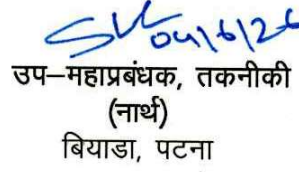 04/6/26
उप–महाप्रबंधक, तकनीकी
(नार्थ)
बियाडा, पटना